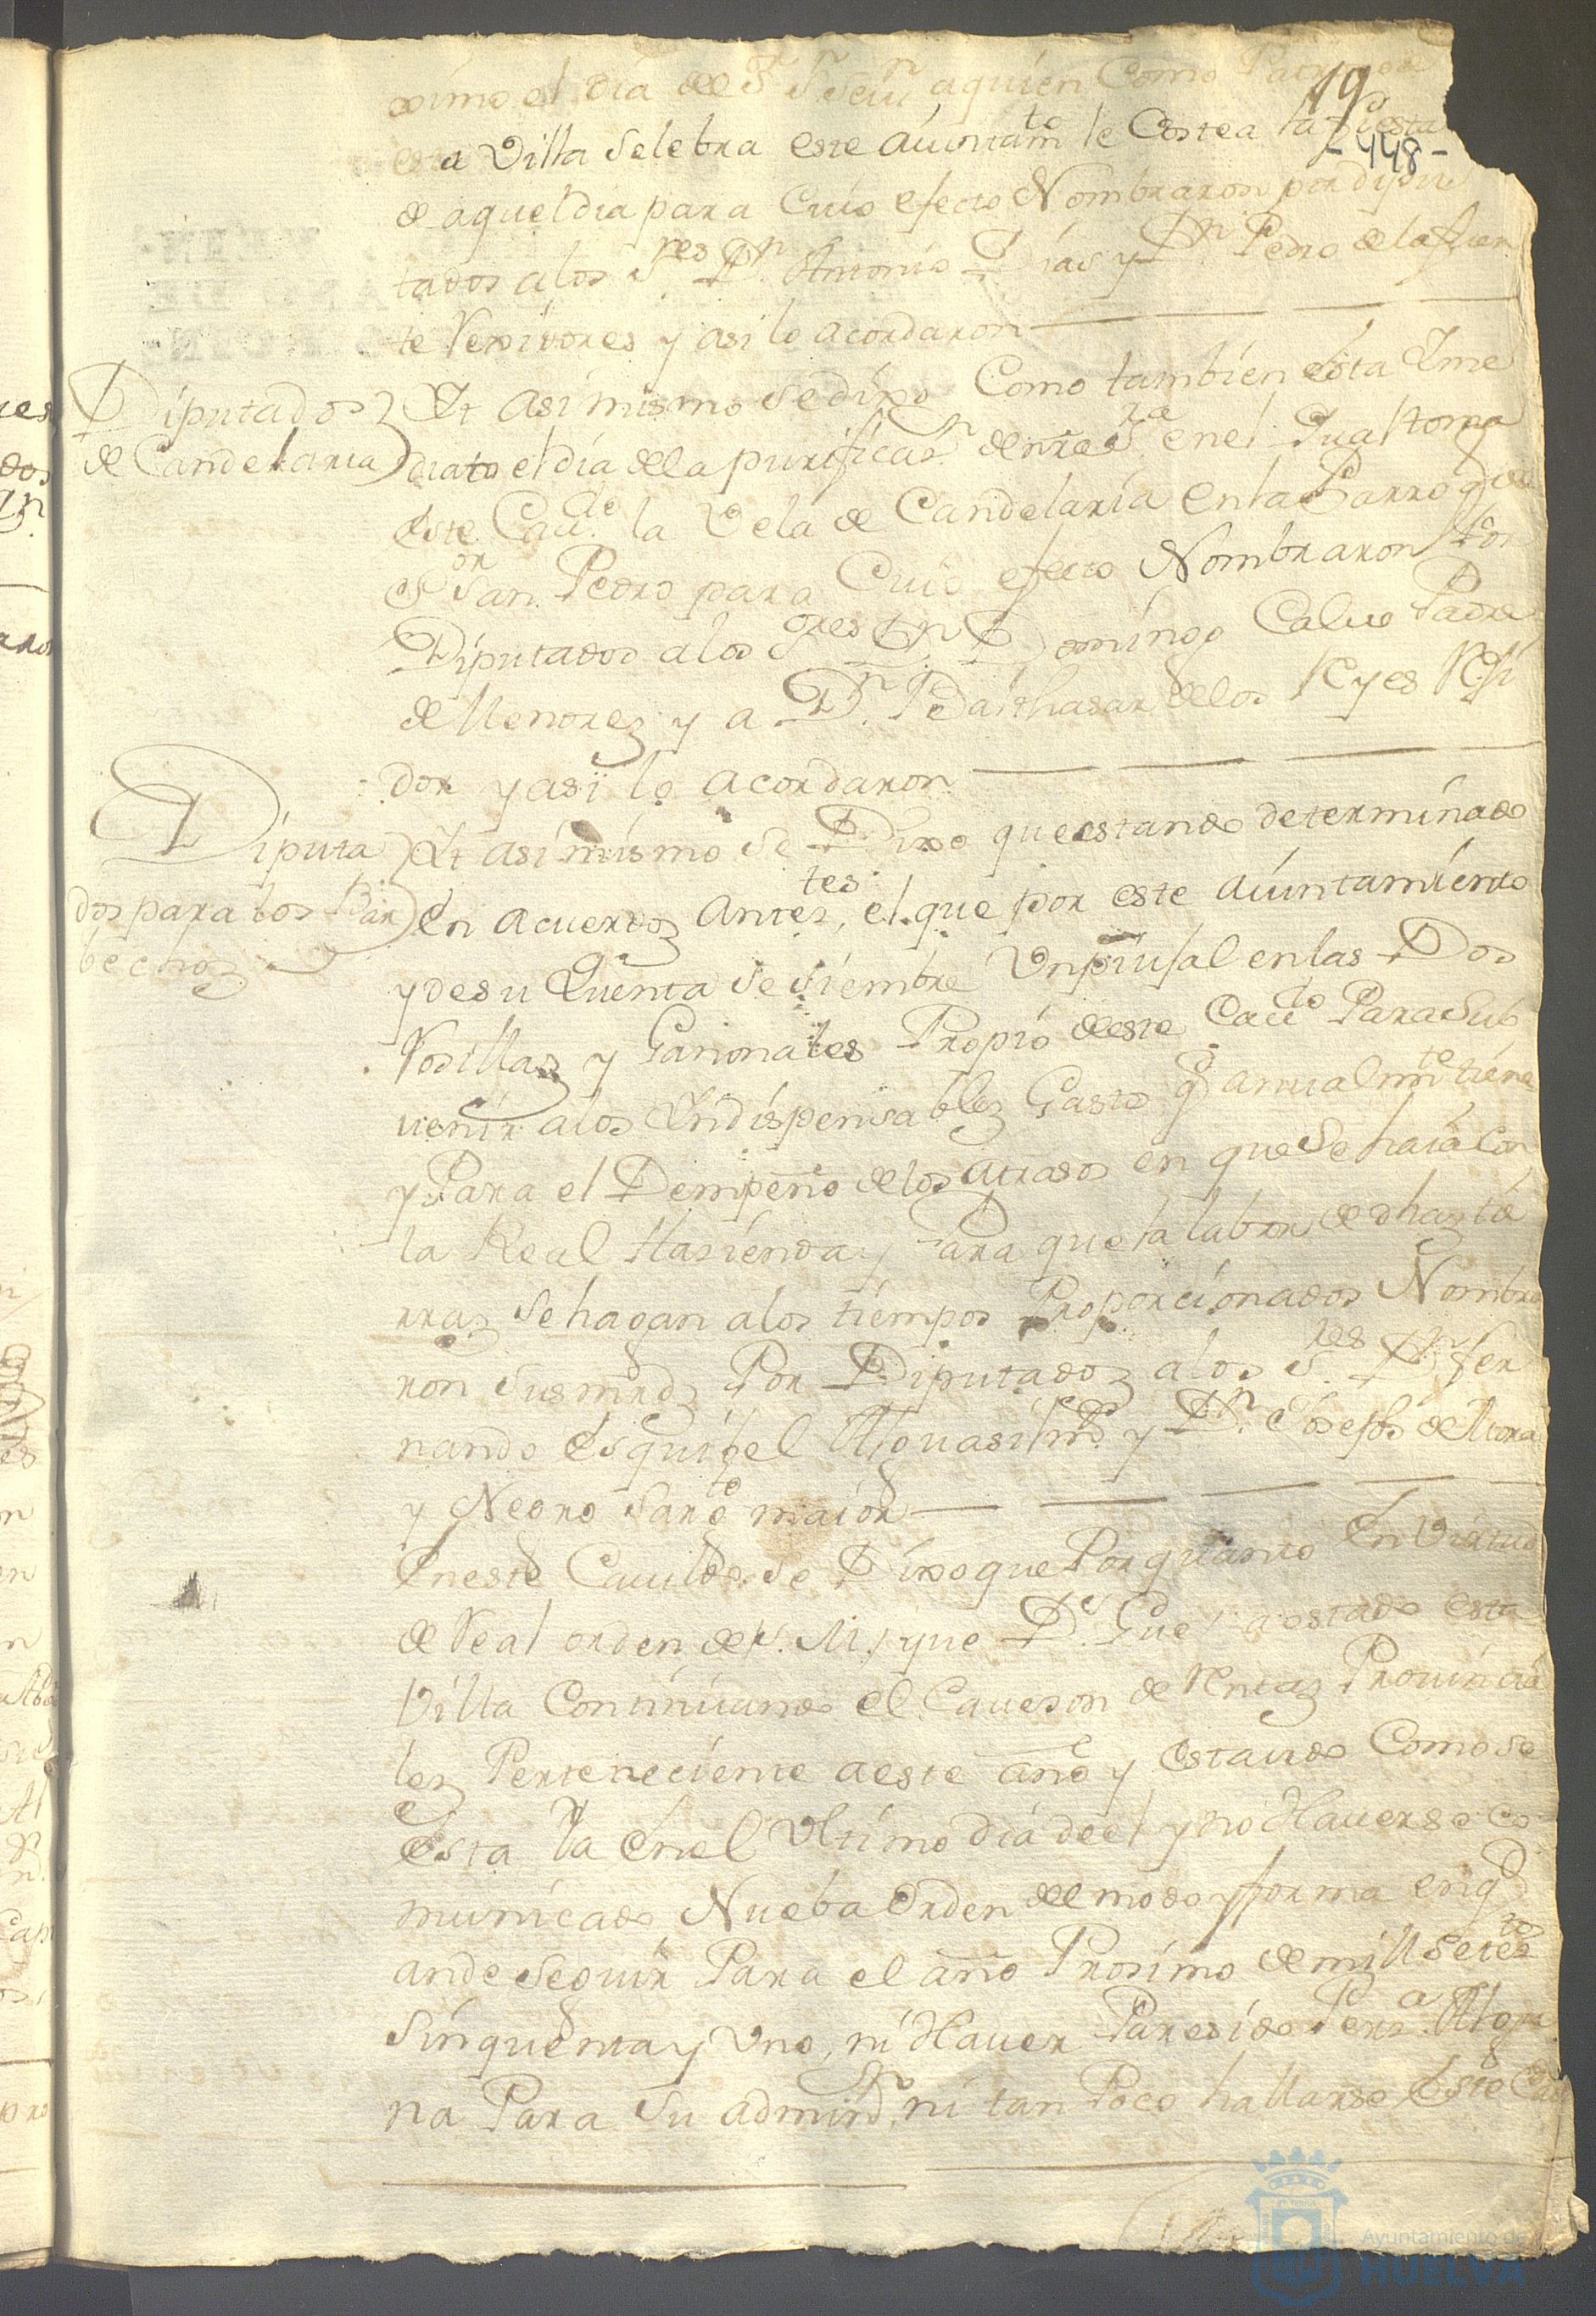 19
-448-
ximo el dia de Sn Sevn aquien Como Patrono de
esta Villa Selebra este Aiuntamto le Costea la fiesta
de aquel dia para Cuio efecto Nombraron por dipu
tados alos Sres Dn Antonio Dias y Dn Pedro de la Fuen
te Rexidores y asi lo acordaron
Diputados
de Candelaria
Yt asimismo se dixo Como tambien esta Yme
diato el dia de la purificasn de nra Sra en el qual toma
este Cavdo la Vela de Candelaria en la Parroqa de
Sor San Pedro para Cuio efecto Nombraron Por
Diputados alos Sores Dn Domingo Calvo Padre
de Menores y a Dn Balthasar de los Reyes Rexi
dor y asi lo acordaron
Diputa
dos para los Bar
bechos
Yt asimismo se Dixo que estando determinado
en acuerdos Antestes el que por este aiuntamiento
y de su Quenta se siembre Un piujal en las Dos
Rosillas y Garionales Propio de este Cavdo Para Sub
uenir alos Yndispensables Gastos q anualmte tiene
y Para el Dempeño de los atrasos en que se haia Con
la Real Hasienda y Para que la labor de dhas tie
rras se hagan alos tiempos Proporcionados Nombra
ron Sus mrds Por Diputados alos Sres Dn fer
nando Esquibel Alguasil mr y Dn Joseph de Mora
y Negro Sargto maior
En este Cavildo se Dixo que Por quanto En Virtud
de Real orden de S. M. que De Gue a estado esta
Villa Continuando el Caueson de Rentas Provincia
les Perteneciente a este año y estando Como se
esta Ya en el Ultimo dia de el y no Hauerse co
municado Nueba Orden del modo y forma en q
ande Seguir Para el año Proximo de mill Setetos
Sinquenta y Uno, ni Hauer Paresido Persa Algu
na Para Su adminon, ni tan Poco hallarse Este Cav
Ayuntamiento de
HUELVA